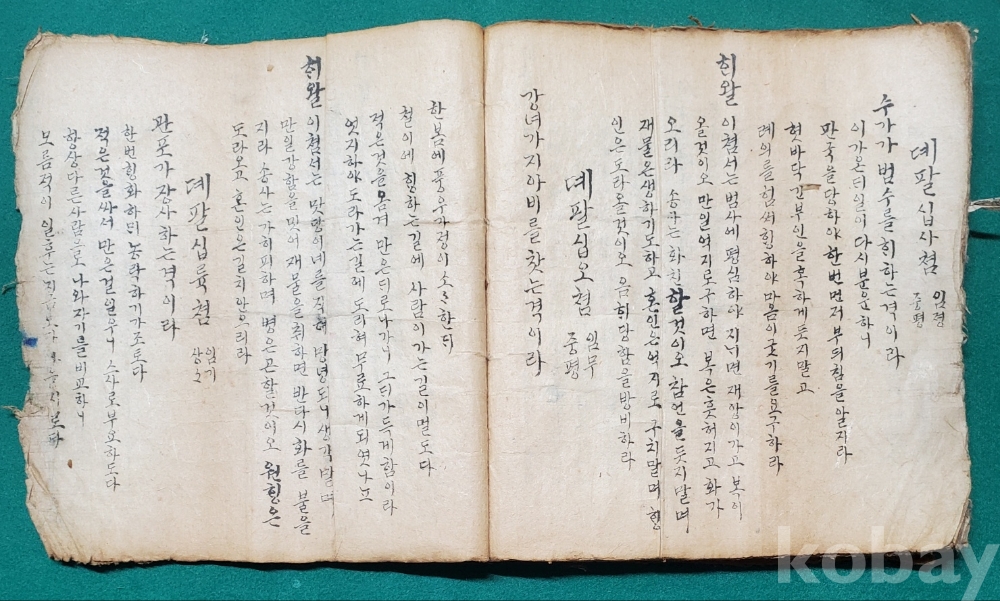 뎨팔십사쳠 임졍 중평
수가가 범수를 취하는 격이라
이가온디 일이 다시 분운하니
판국을 당하야 한번 먼저 부듸침을 알지라
혓바닥 간부인을 혹하게 듯지 말고
례의를 힘써 힝하야 맘음이 굿기를 요구하라
희왈 이 쳠셔는 범사에 평심하야 지니면 재상이 가고 복이
올것이오 만일 여지로 구하면 복은 흣허지고 화가
오리라 송사는 화친할 것이오 참언을 듯지 말며
재물은 생하기도 하고 혼인은 여지로 구치 말며 힝
인은 도라올것이오 음히 당함을 방비하라
뎨팔십오쳠 임무 중평
강녀가 지아비를 찻는 격이라
한봄에 풍우가 졍이 소소한듸
쳘이에 힝하는 길에 사람이 가는 길이 멀도다
적은것을 옴겨 만은듸로 나가니 그듸가 득게함이라
엇지하야 도라가는 길에 도리혀 무료하게 되엿나뇨
희왈 이 쳠셔는 맛당이 네를 직혀 안녕되니 생각 말며
만일 강함을 밋어 재물을 취하면 반다시 화를 불을
지라 송사는 가히 피하며 병은 곤할 것이오 원힝은
도라오고 혼인은 길치 안으리라
뎨팔십륙쳠 임기 상길
관포가 장사하는 격이라
한번 힝화하듸 농락하기가 조토다
적은것을 싸셔 만은걸 일우니 스사로 부요하도다
항상 다른 사람으로 나와 자기를 비교하니
모름적이 일후는 지금
kobay